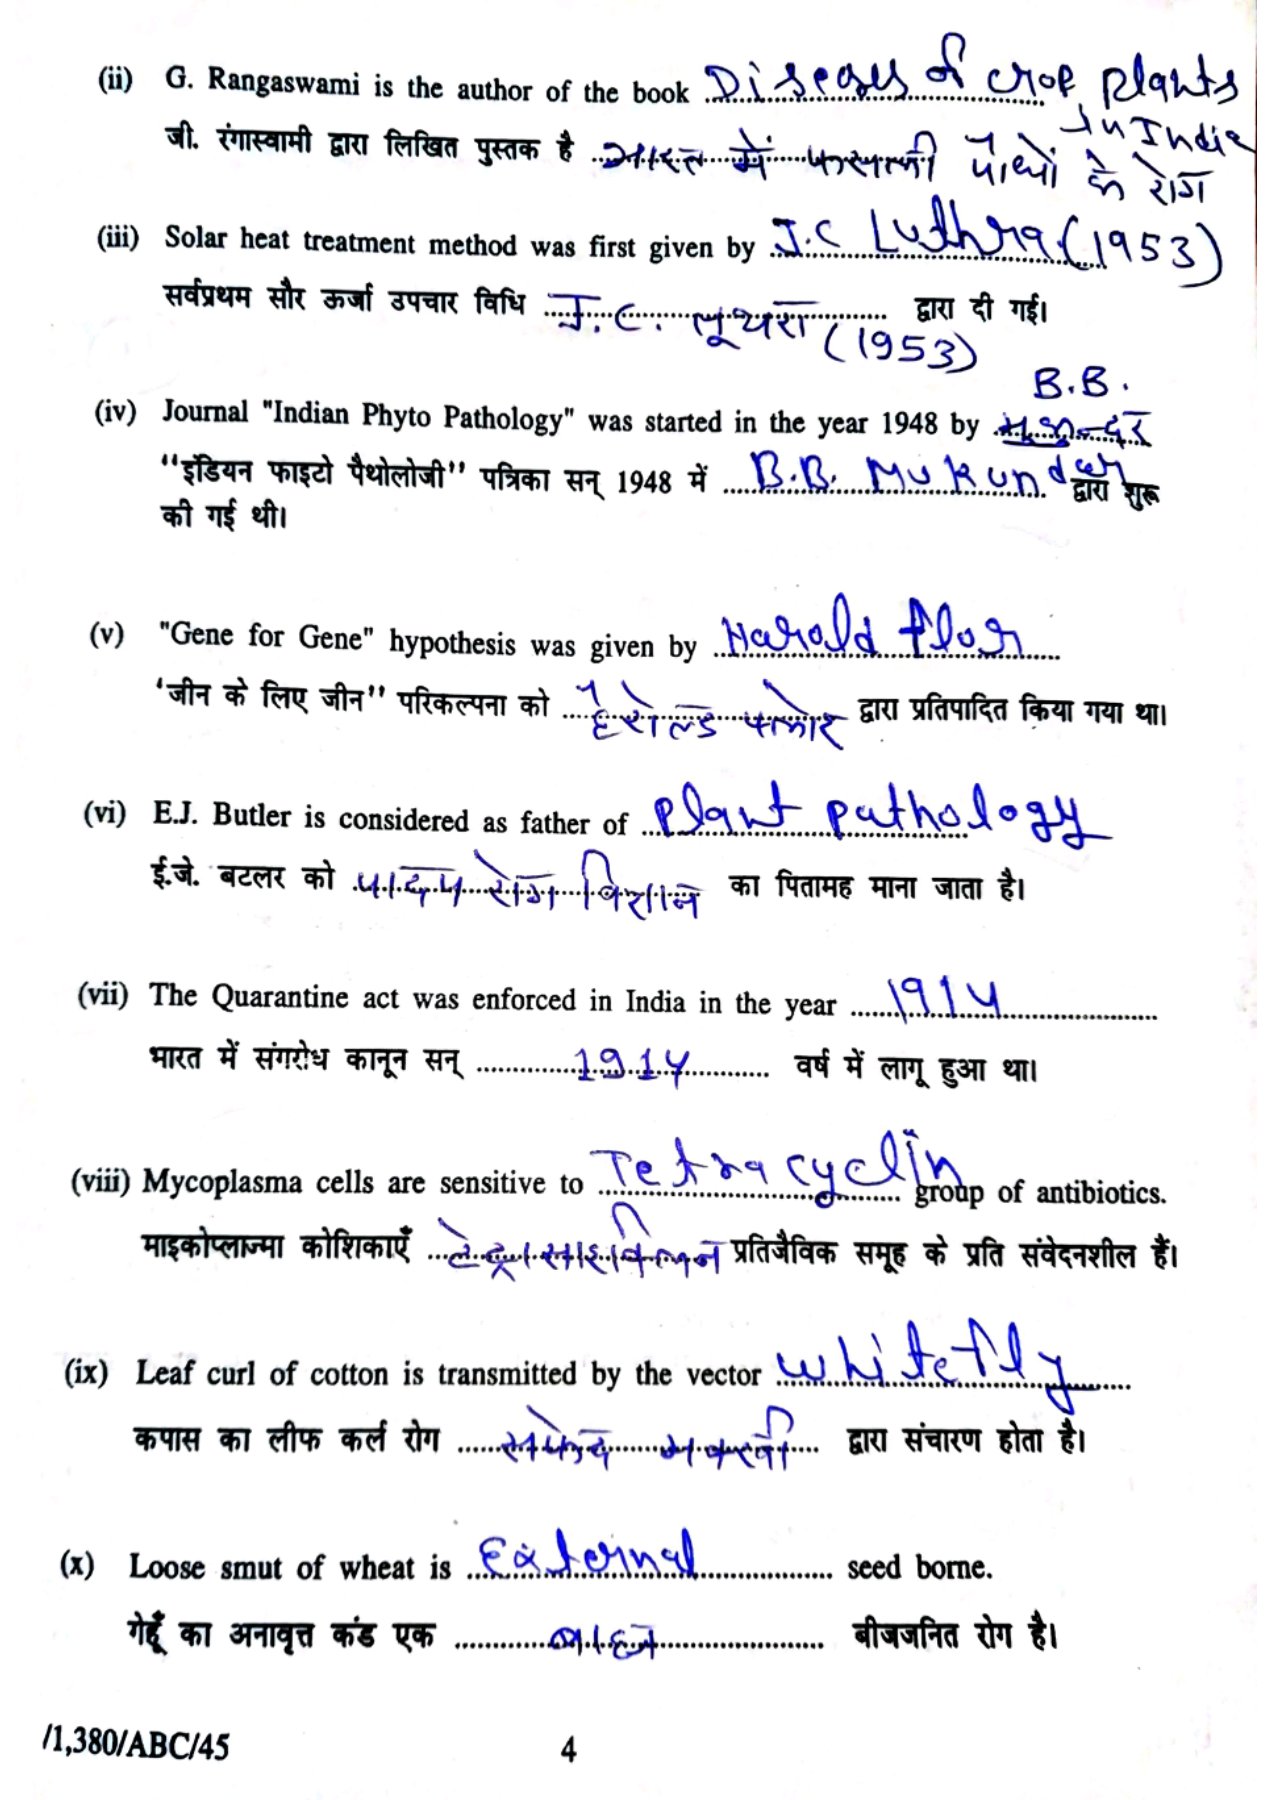 (ii) G. Rangaswami is the author of the book Diseases of crop plants
in India
जी. रंगास्वामी द्वारा लिखित पुस्तक है भारत में फसली पौधों के रोग
(iii) Solar heat treatment method was first given by J.C Luthra (1953)
सर्वप्रथम सौर ऊर्जा उपचार विधि J.C. लूथरा द्वारा दी गई।
(1953)
B.B.
(iv) Journal "Indian Phyto Pathology" was started in the year 1948 by मुकुन्दर
“इंडियन फाइटो पैथोलोजी” पत्रिका सन् 1948 में B.B. Mukundar द्वारा शुरू
की गई थी।
(v) "Gene for Gene" hypothesis was given by Harold flor
‘जीन के लिए जीन” परिकल्पना को हैरोल्ड फ्लोर द्वारा प्रतिपादित किया गया था।
(vi) E.J. Butler is considered as father of plant pathology
ई.जे. बटलर को पादप रोग विज्ञान का पितामह माना जाता है।
(vii) The Quarantine act was enforced in India in the year 1914
भारत में संगरोध कानून सन् 1914 वर्ष में लागू हुआ था।
(viii) Mycoplasma cells are sensitive to Tetracyclin group of antibiotics.
माइकोप्लाज्मा कोशिकाएँ टेट्रासाइक्लिन प्रतिजैविक समूह के प्रति संवेदनशील हैं।
(ix) Leaf curl of cotton is transmitted by the vector whitefly
कपास का लीफ कर्ल रोग सफेद मक्खी द्वारा संचारण होता है।
(x) Loose smut of wheat is External seed borne.
गेहूँ का अनावृत्त कंड एक बाह्य बीजजनित रोग है।
/1,380/ABC/45 4